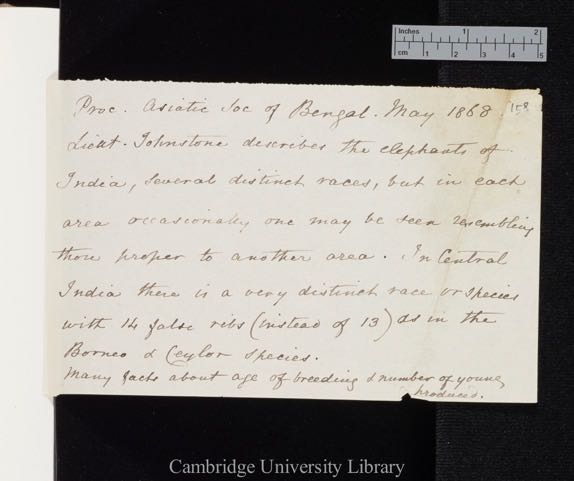 Inches 1 2
cm 1 2 3 4 5
158
Proc. Asiatic Soc of Bengal. May 1868
Lieut. Johnstone describes the elephants of
India, several distinct races, but in each
area occasionally one may be seen resembling
those proper to another area. In Central
India there is a very distinct race or species
with 14 false ribs (instead of 13) as in the
Borneo & Ceylon species.
Many facts about age of breeding & number of young
produced.
Cambridge University Library